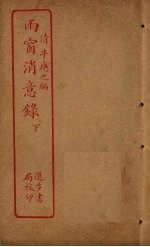 清牛應之編
雨窗消意錄 下
進步書
局校印